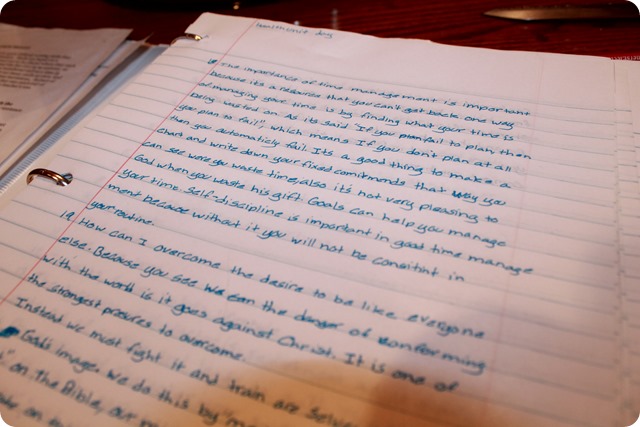 health unit day
The importance of time management is important
because its a resource that you can't get back one way
of managing your time is by finding what your time is
being wasted on. As its said "If you plan fail to plan then
you plan to fail", which means If you don't plan at all
then you automaticly fail. It's a good thing to make a
chart and write down your fixed comitmends that way you
can see were you waste time, also it's not very pleasing to
God when you waste his gift. Goals can help you manage
your time. Self-discipline is important in good time manage
ment because without it you will not be consitint in
your routine.
How can I overcome the desire to be like everyone
else. Because you see we can the danger of conforming
with the world is it goes against Christ. It is one of
the strongest presures to overcome.
Instead we must fight it and train are selves
God's image. We do this by
on the Bible, our
on